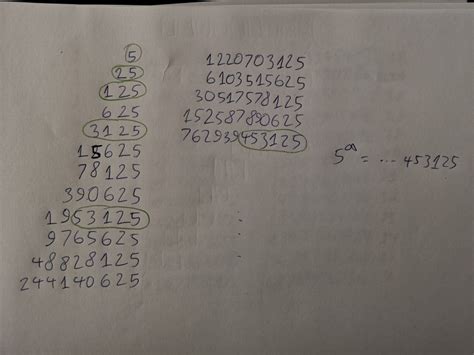 5
25
125
625
3125
15625
78125
390625
1953125
9765625
48828125
244140625
1220703125
6103515625
30517578125
152587890625
762939453125
5^a = ... 453125